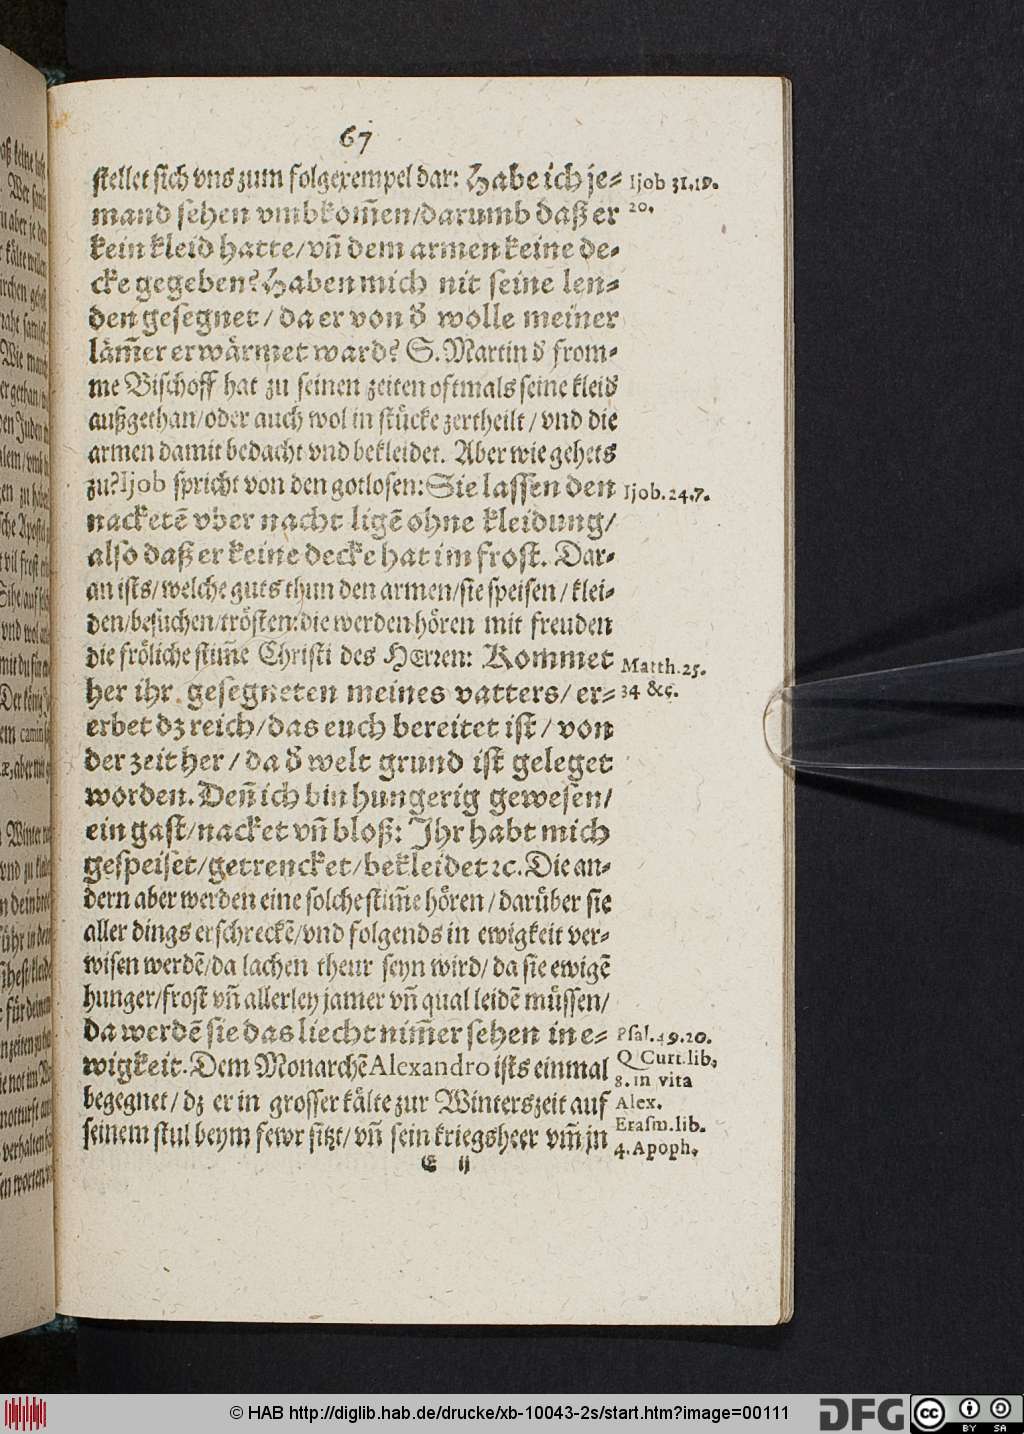 67
stellet sich vns zum folgexempel dar: Habe ich je- Ijob 31.19.
mand sehen vmbkom̃en/darumb daß er 20.
kein kleid hatte/vñ dem armen keine de-
cke gegeben? Haben mich nit seine len-
den gesegnet/ da er von d̕ wolle meiner
läm̃er erwärmet ward? S. Martin d̕ from-
me Bischoff hat zu seinen zeiten oftmals seine kleid̕
außgethan/oder auch wol in stücke zertheilt/ vnd die
armen damit bedacht vnd bekleidet. Aber wie gehets
zu? Ijob spricht von den gotlosen: Sie lassen den Ijob.24.7.
nacketẽ vber nacht ligẽ ohne kleidung/
also daß er keine decke hat im frost. Dar-
an ists/welche guts thun den armen/sie speisen/ klei-
den/besuchen/trösten: die werden hören mit freuden
die fröliche stim̃e Christi des HErren: Kommet Matth.25.
her ihr gesegneten meines vatters/ er- 34 &c.
erbet dz reich/das euch bereitet ist/ von
der zeit her/ da d̕ welt grund ist geleget
worden. Deñ ich bin hungerig gewesen/
ein gast/nacket vñ bloß: Ihr habt mich
gespeiset/getrencket/bekleidet ꝛc. Die an-
dern aber werden eine solche stim̃e hören/ darüber sie
aller dings erschreckẽ/vnd folgends in ewigkeit ver-
wisen werdẽ/da lachen theur seyn wird/ da sie ewigẽ
hunger/frost vñ allerley jamer vñ qual leidẽ müssen/
da werdẽ sie das liecht nim̃er sehen in e- Psal.49.20.
wigkeit. Dem Monarchẽ Alexandro ists einmal Q Curt.lib,
8. in vita
begegnet/ dz er in grosser kälte zur Winterszeit auf Alex.
seinem stul beym fewr sitzt/ vñ sein kriegsheer vm̃ jn Erasm.lib.
4. Apoph.
E ij
© HAB http://diglib.hab.de/drucke/xb-10043-2s/start.htm?image=00111
DFG
cc
BY SA